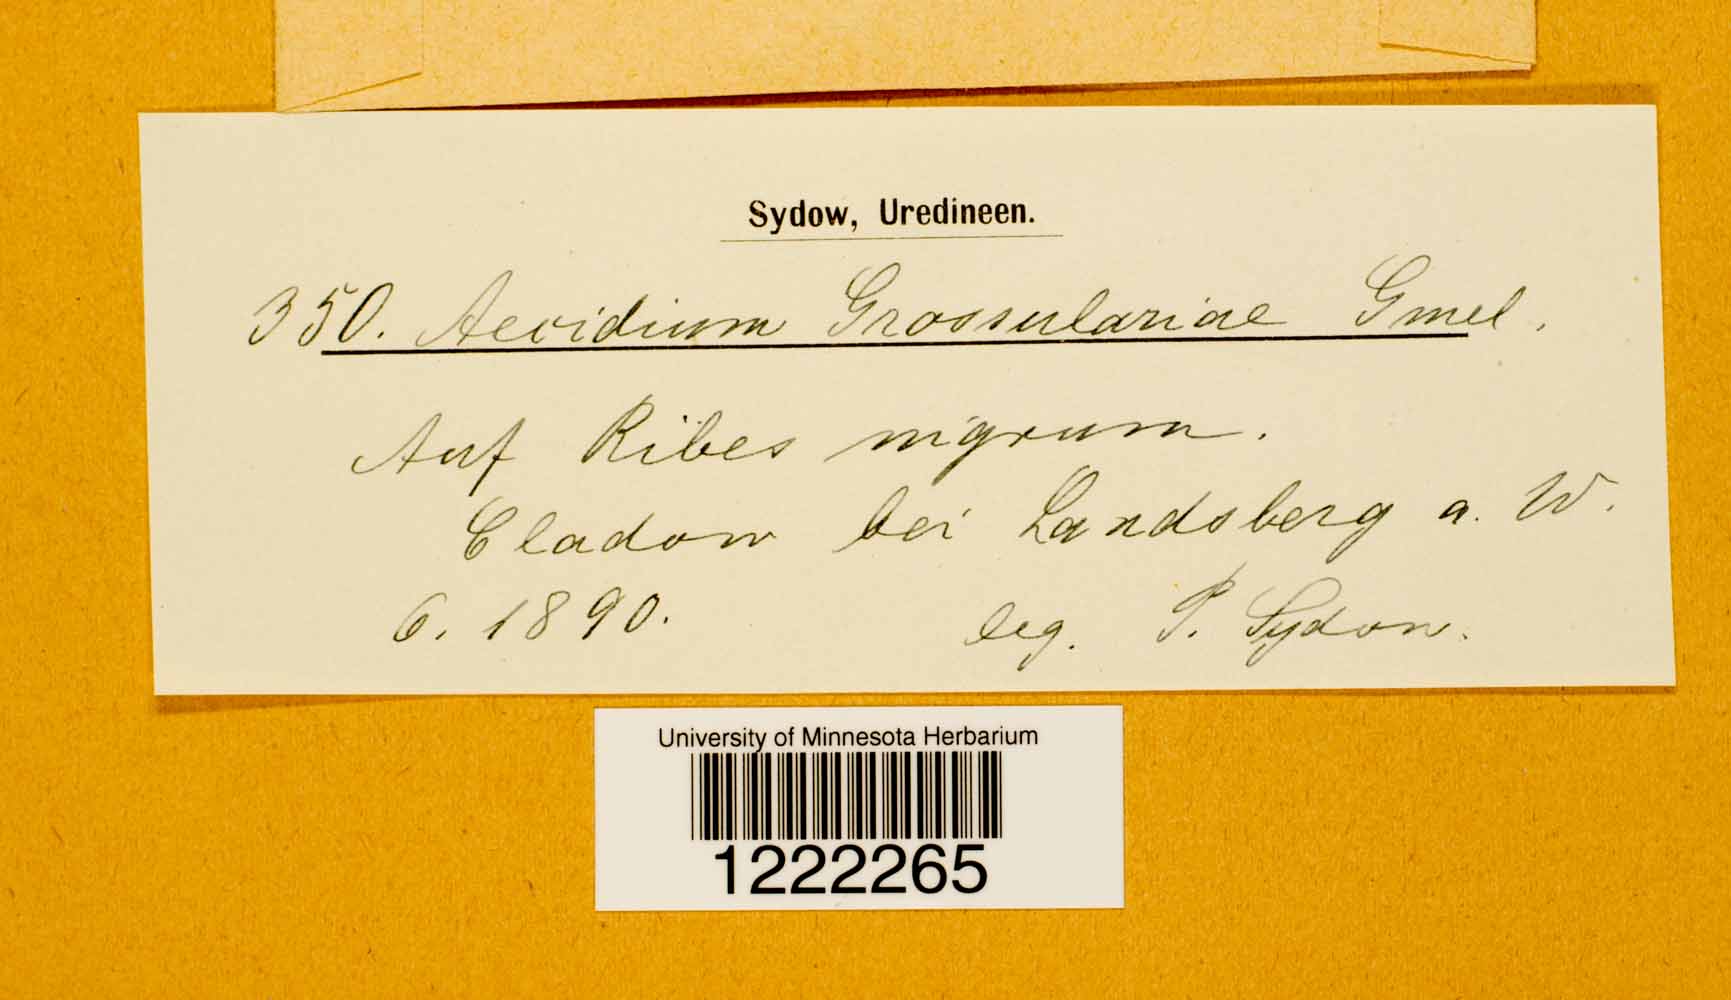 Sydow, Uredineen.
350. Aecidium Grossulariae Gmel.
Auf Ribes nigrum.
Cladow bei Landsberg a. W.
6. 1890. leg. P. Sydow.
University of Minnesota Herbarium
1222265